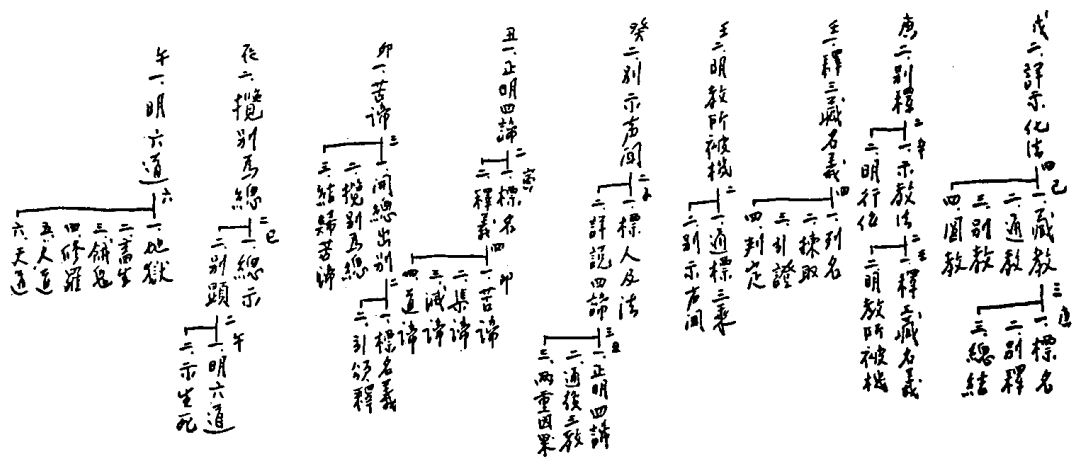 戊二、詳示化法 四 己
一、藏教 三 庚
二、通教
三、別教
四、圓教
一、標名
二、別釋
三、總結
庚二、別釋 二 辛
一、示教法 二 壬
二、明行位
一、釋三藏名義
二、明教所被機
壬一、釋三藏名義 四
一、列名
二、揀取
三、引證
四、判定
壬二、明教所被機 二
一、通標三乘
二、別示声聞
癸二、別示声聞 二 子
一、標人及法
二、詳說四諦 三 丑
一、正明四諦
二、通後三教
三、兩重因果
丑一、正明四諦 二 寅
一、標名
二、釋義 四 卯
一、苦諦
二、集諦
三、滅諦
四、道諦
卯一、苦諦 三
一、開總出別 二
二、攬別為總
三、結歸苦諦
一、標名義
二、引頌釋
辰二、攬別為總 二 巳
一、總示
二、別顯 二 午
一、明六道
二、示生死
午一、明六道 六
一、地獄
二、畜生
三、餓鬼
四、修羅
五、人道
六、天道